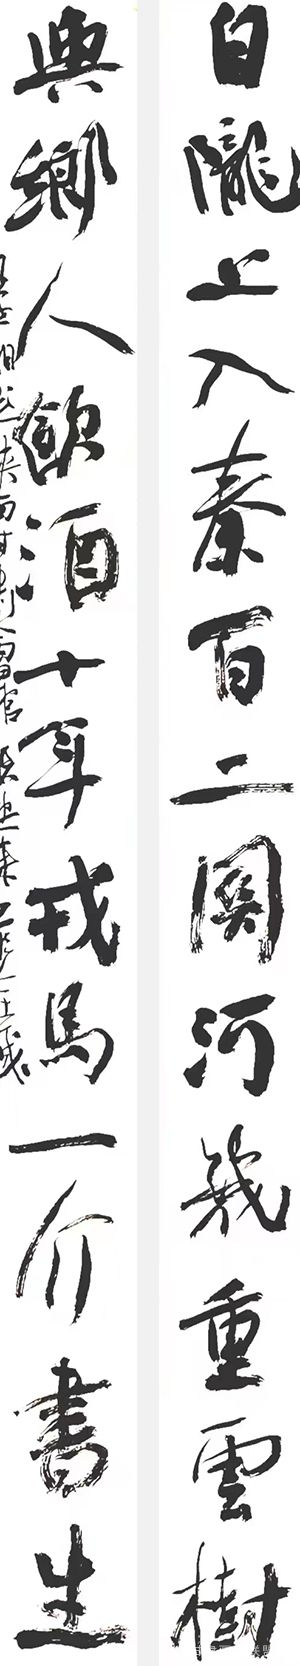 自隴上入秦百二關河幾重雲樹
與鄉人飲酒十年戎馬一介書生